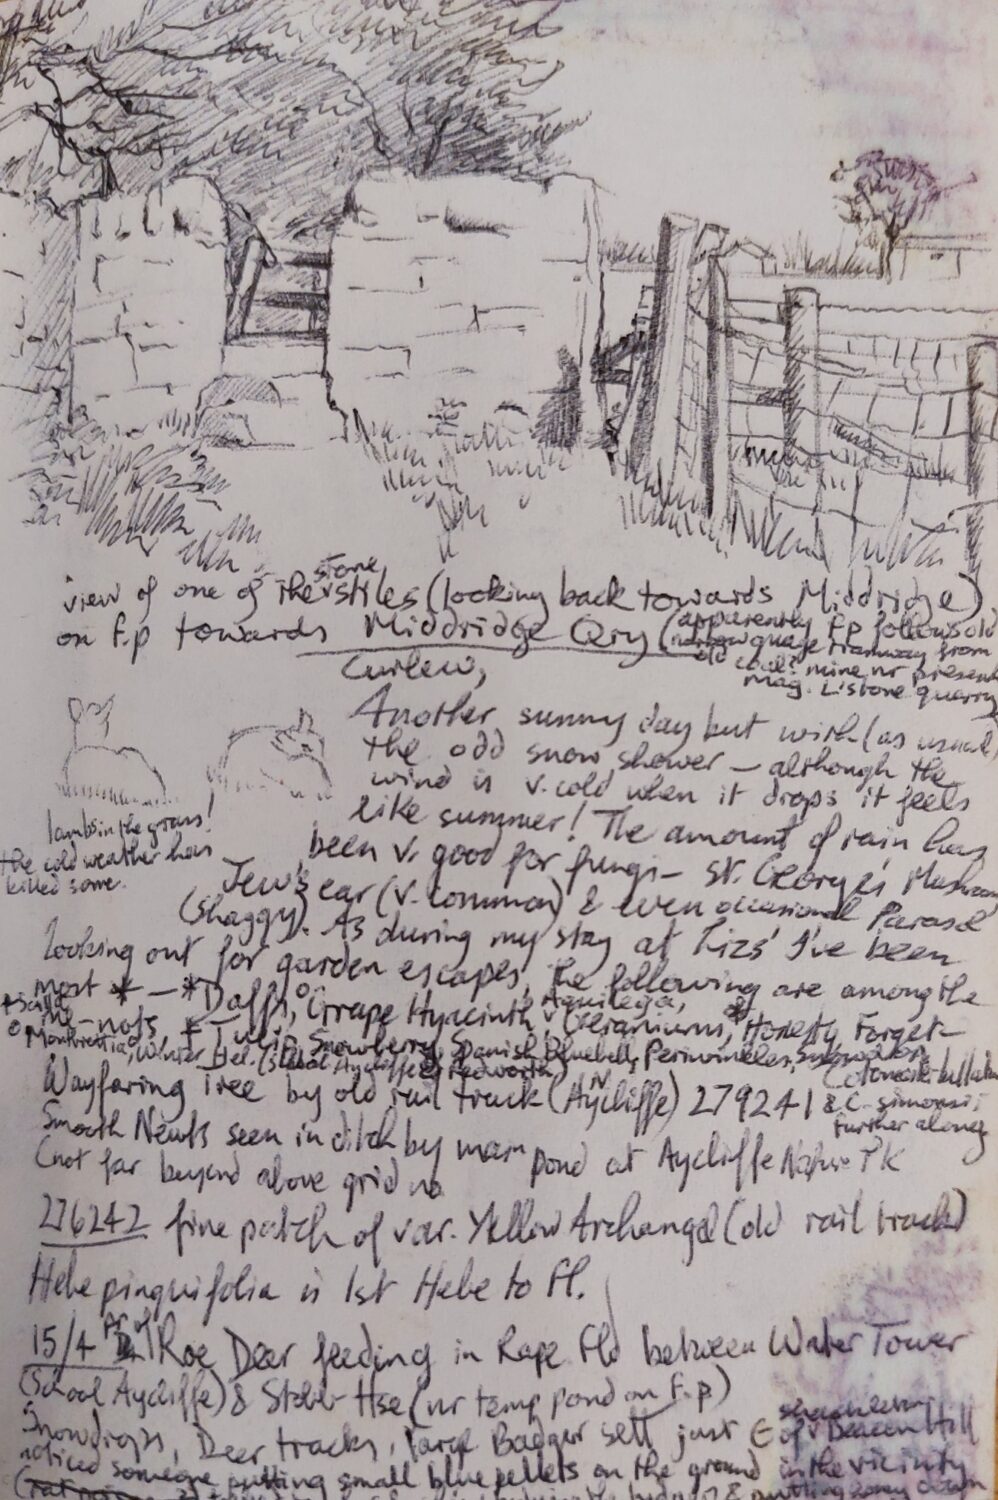 view of one of the stone stiles (looking back towards Middridge)
on f.p towards Middridge Qry (apparently f.p follows old
narrow guage tramway from
old coal? mine nr present
Mag. L'stone quarry
Curlew,
Another sunny day but with (as usual)
the odd snow shower – although the
wind is v. cold when it drops it feels
like summer! The amount of rain has
been v. good for fungi – St. George's Mushroom
lambs in the grass!
the cold weather has
killed some.
Jew's ear (v. common) & even occasional Parasol
(Shaggy). As during my stay at Lizs' I've been
looking out for garden escapes, the following are among the
most * – * Daffs, ° Grape Hyacinth, Aquilegia, Geraniums, Honesty, Forget-
me-nots, Tulip, Snowberry, Spanish Bluebell, Periwinkles, Snowdrops
° Montbretia, Winter Hel. (School Aycliffe & Redworth)
Wayfaring Tree by old rail track (Aycliffe) 279241 & C. simonsii
further along
Smooth Newts seen in ditch by main pond at Aycliffe Nature Pk
(not far beyond above grid no.
276242 fine patch of var. Yellow Archangel (old rail track)
Hebe pinguifolia is 1st Hebe to fl.
15/4 Pr of Roe Deer feeding in Rape Fld between Water Tower
(School Aycliffe) & Hse (nr temp pond on f.p)
Snowdrops, Deer tracks, large Badger sett just E of Beacon Hill
noticed someone putting small blue pellets on the ground in the vicinity